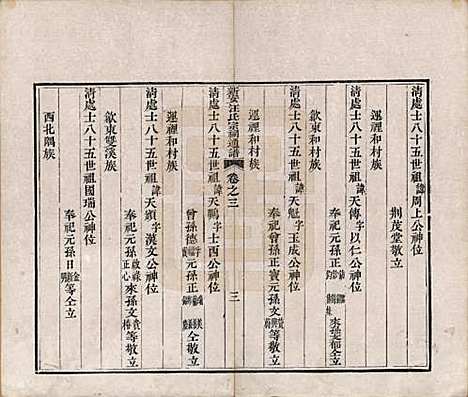 清處士八十五世祖諱周上公神位
荆茂堂敬立
歙東和村族
清處士八十五世祖諱天傳字以仁公神位
奉祀元孫正
來楚郁仝立
還裡和村族
清處士八十五世祖諱天魁字玉成公神位
奉祀曾孫正寶元孫文等敬立
還裡和村族
新安汪氏宗祠通譜 卷之三 三
清處士八十五世祖諱天鵬字士四公神位
曾孫德元孫正仝敬立
還裡和村族
清處士八十五世祖諱天頭字漢文公神位
奉祀元孫正心來孫文等敬立
歙東雙溪族
清處士八十五世祖國瑞公神位
奉祀元孫日等仝立
西北隅族